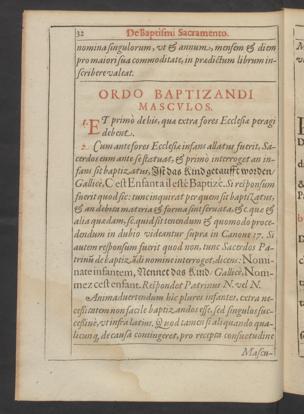 32 De Baptismi Sacramento.
nomina singulorum, vt & annum, mensem & diem
pro maiori sua commoditate, in prædictum librum in-
scribere valeat.
ORDO BAPTIZANDI
MASCVLOS.
1. ET primò de his, quæ extra fores Ecclesiæ peragi
debent.
2. Cum ante fores Ecclesiæ infans allatus fuerit, Sa-
cerdos eum ante se statuat, & primò interroget an in-
fans sit baptizatus, Ist das Kind getaufft worden/
Gallicè, C'est Enfant a il esté Baptizé. Si responsum
fuerit quod sic: tunc inquirat per quem sit baptizatus,
& an debita materia & forma sint seruatæ, & c. quæ &
alia quædam, sc. quid sit tenendum & quomodo proce-
dendum in dubio videantur supra in Canone 17. Si
autem responsum fuerit quod non, tunc Sacerdos Pa-
trinũ de baptizãdi nomine interroget, dicens: Nomi-
nate infantem, Nennet das Kind/ Gallicè, Nom-
mez cest enfant. Respondet Patrinus N. vel N.
Animaduertendum hic plures infantes, extra ne-
cessitatem non facile baptizandos esse, sed singulos suc-
cessiuè, vt infra latius. Quod tamen si aliquando qua-
licunq, de causa contingeret, pro recepta consuetudine
Mascu-